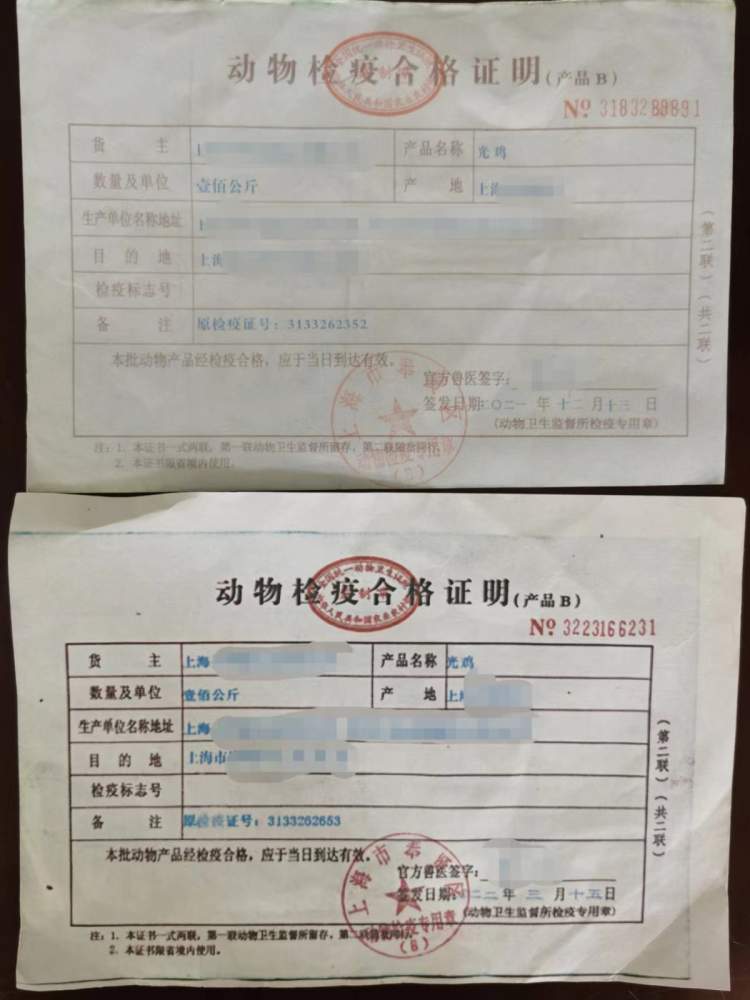 动物检疫合格证明(产品B)
№ 3183289891
货 主 产品名称 光鸡
数量及单位 壹佰公斤 产 地 上海
生产单位名称地址
目 的 地 上海
检疫标志号
备 注 原检疫证号：3133262352
本批动物产品经检疫合格，应于当日到达有效。
官方兽医签字：
签发日期：二〇二一 年 十二 月 十三 日
(动物卫生监督所检疫专用章)
注：1. 本证书一式两联，第一联动物卫生监督所留存，第二联随货同行。
2. 本证书限省境内使用。
(第二联)(共二联)
上海市奉
(B)
动物检疫合格证明(产品B)
№ 3223166231
货 主 上海 产品名称 光鸡
数量及单位 壹佰公斤 产 地 上
生产单位名称地址 上海
目 的 地 上海市
检疫标志号
备 注 原检疫证号：3133262653
本批动物产品经检疫合格，应于当日到达有效。
官方兽医签字：
签发日期： 二二 年 三 月 十五 日
(动物卫生监督所检疫专用章)
注：1. 本证书一式两联，第一联动物卫生监督所留存，第二联
2. 本证书限省境内使用。
(第二联)(共二联)
上海市奉
检疫专用章
(B)